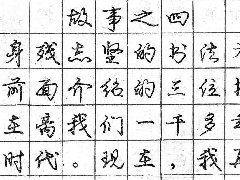 故事之四
身残志坚的书法
前面介绍的三位
在离我们一千多
时代。现在，我